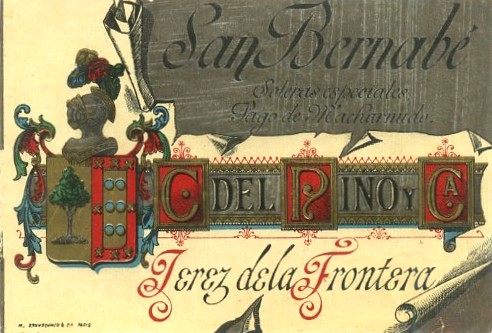 San Bernabé
Soleras especiales.
Pago de Macharnudo.
C. DEL PINO Y Cª.
Jerez de la Frontera